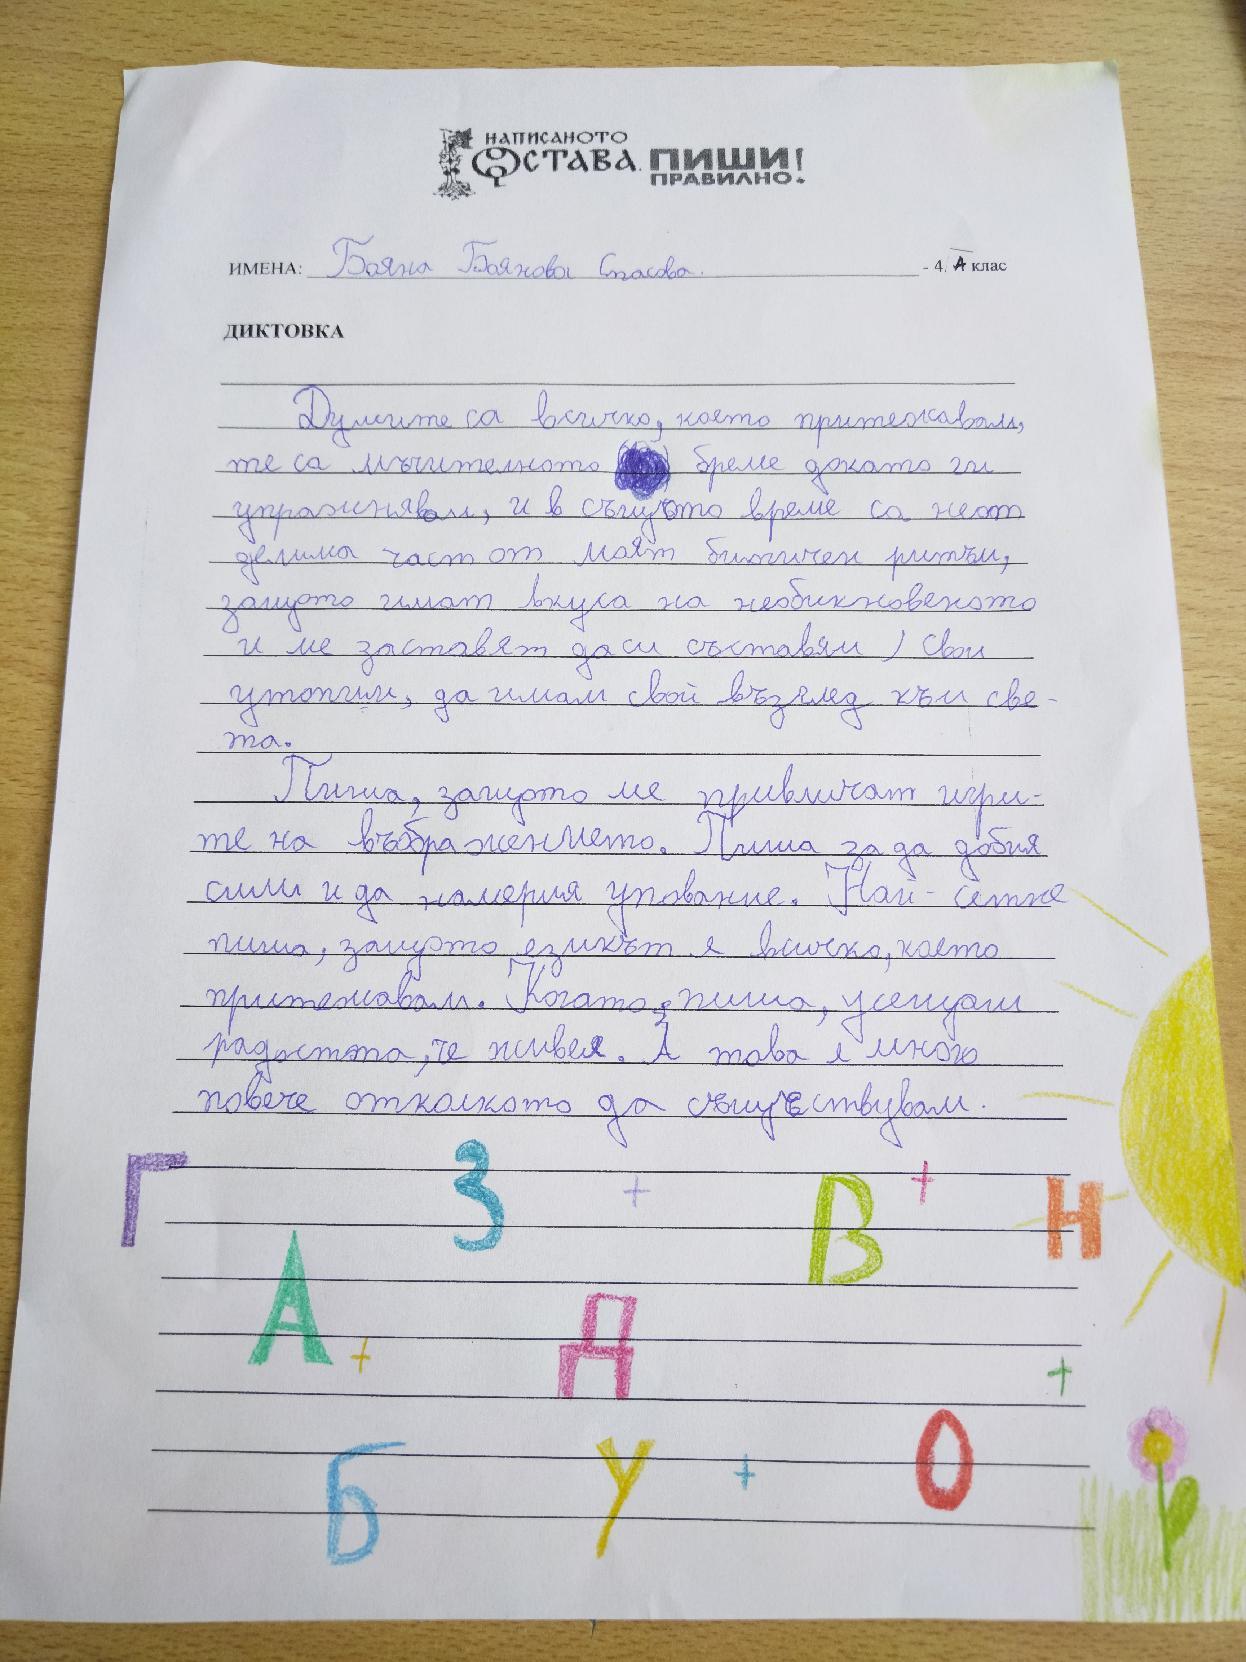 НАПИСАНОТО
ОСТАВА. ПИШИ!
ПРАВИЛНО.
ИМЕНА: Бояна Боянова Спасова. - 4. А клас
ДИКТОВКА
Думите са всичко, което притежавам,
те са мъчителното бреме докато ги
упражнявам, и в същото време са неот
делима част от моят битичен ритъм,
защото имат вкуса на необикновеното
и ме заставят да си съставям свои
утопии, да имам свой възглед към све-
та.
Пиша, защото ме привличат игри-
те на въображението. Пиша за да добия
сили и да намеря упование. Най-сетне
пиша, защото езикът е всичко, което
притежавам. Когато пиша, усещам
радостта, че живея. А това е много
повече отколкото да съществувам.
Г З В Н
А Д
Б У О